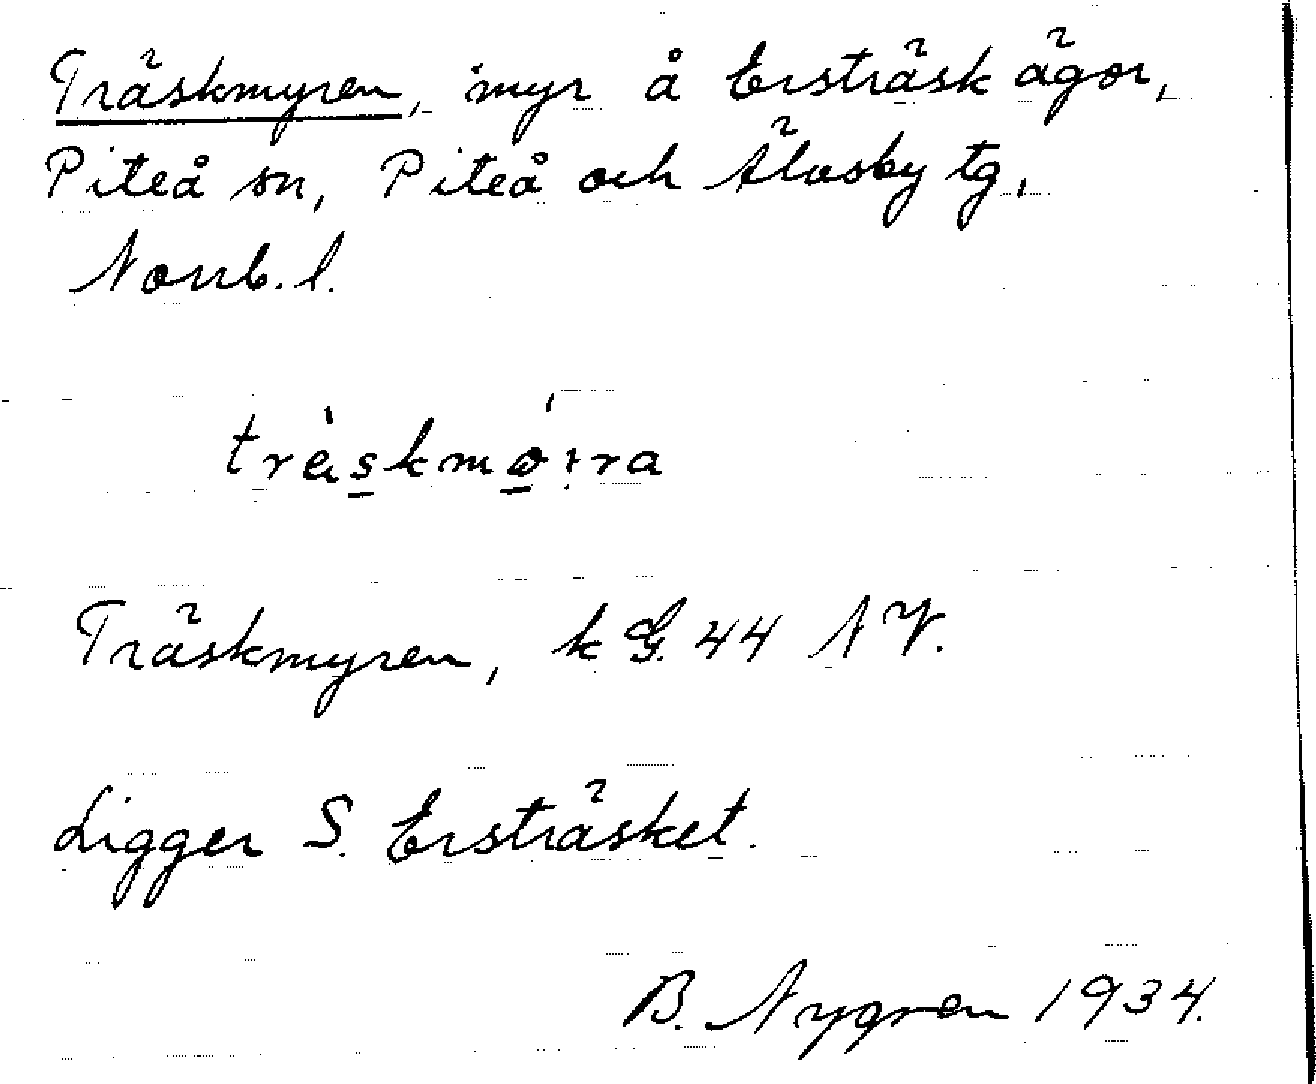 Träskmyren, myr å Ersträsk ägor,
Piteå sn, Piteå och Älvsby tg,
Norrb. l.
träskmø̠ıra
Träskmyren, k G. 44 N V.
Ligger S. Ersträsket.
B. Nygren 1934.